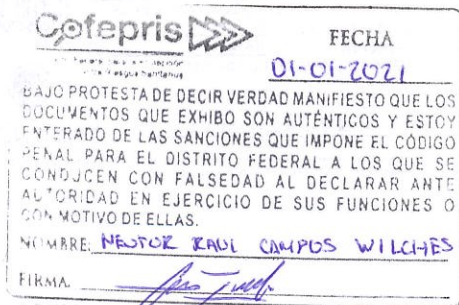 Cofepris
FECHA
01-01-2021
BAJO PROTESTA DE DECIR VERDAD MANIFIESTO QUE LOS
DOCUMENTOS QUE EXHIBO SON AUTÉNTICOS Y ESTOY
ENTERADO DE LAS SANCIONES QUE IMPONE EL CÓDIGO
PENAL PARA EL DISTRITO FEDERAL A LOS QUE SE
CONDUCEN CON FALSEDAD AL DECLARAR ANTE
AUTORIDAD EN EJERCICIO DE SUS FUNCIONES O
CON MOTIVO DE ELLAS.
NOMBRE: NESTOR RAUL CAMPOS WILCHES
FIRMA.